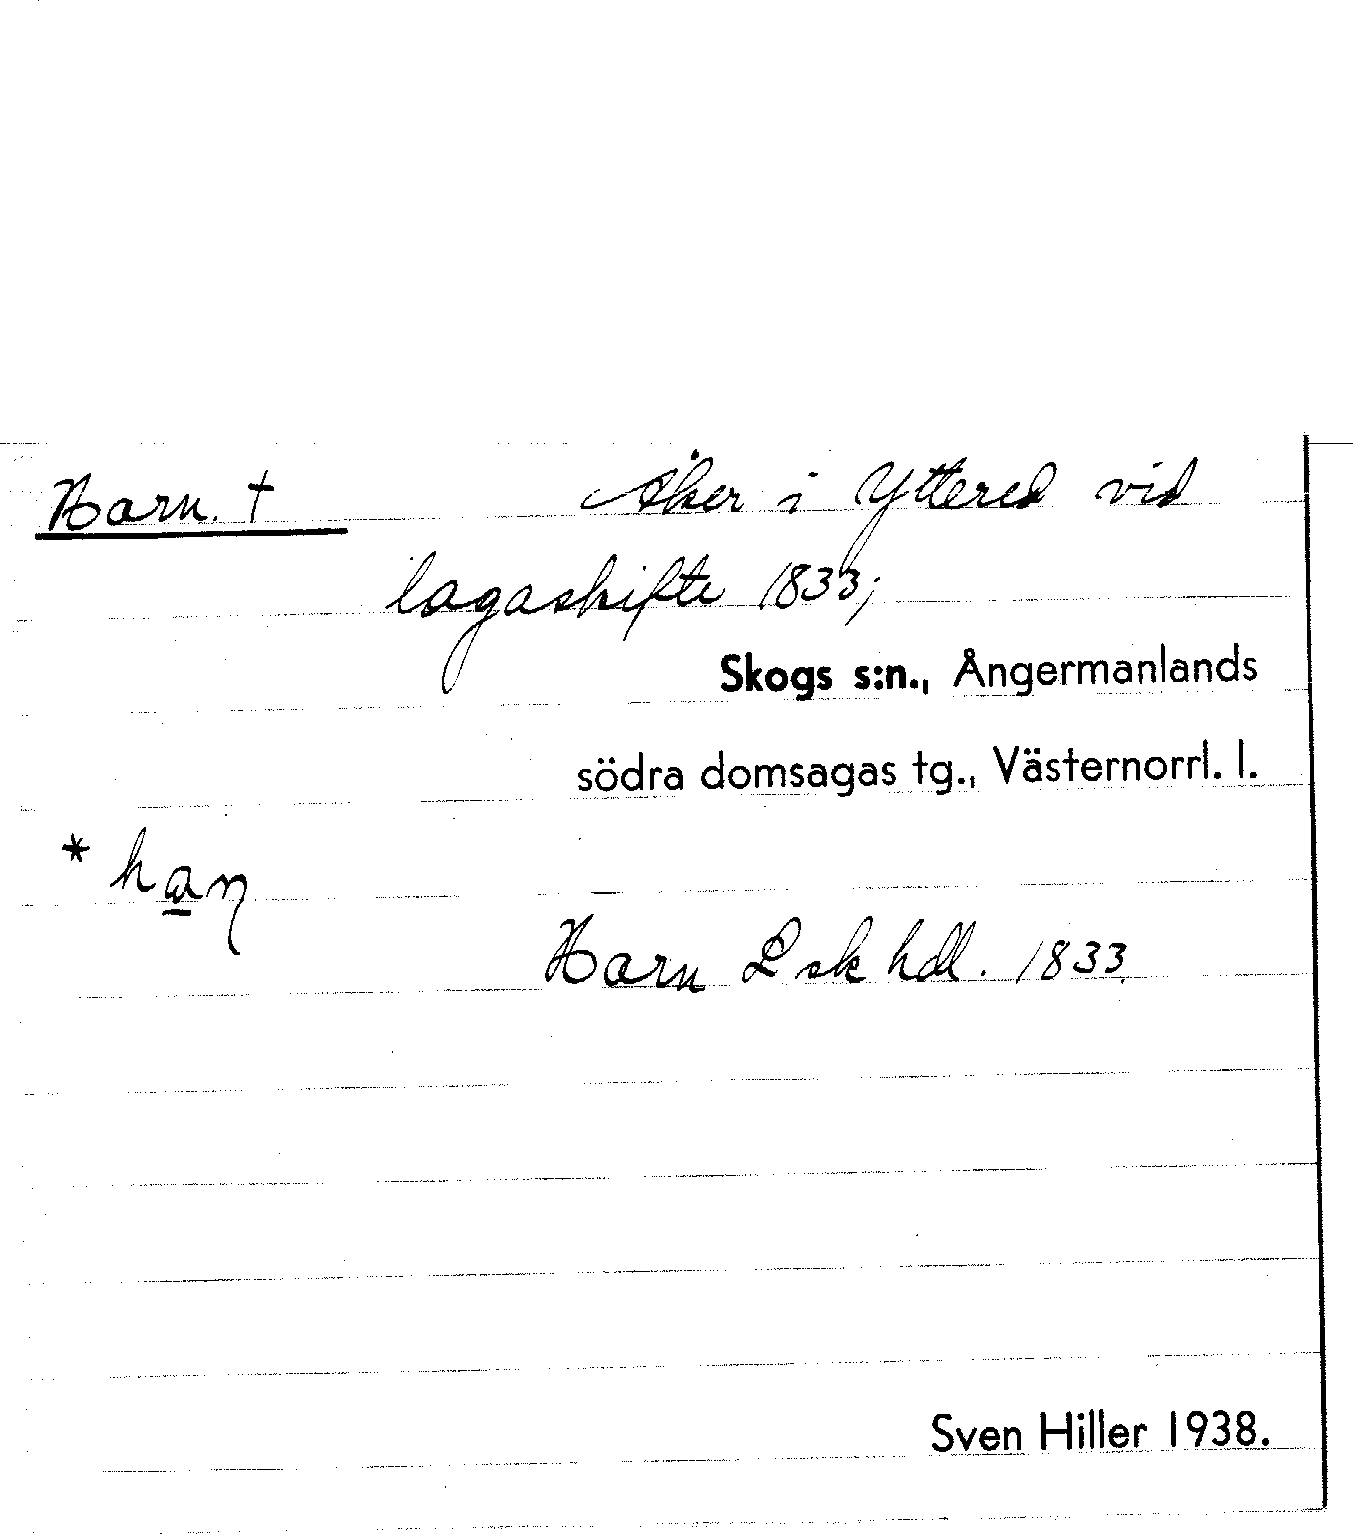 Harn. † Åker i Yttered vid
lagaskifte 1833;
Skogs s:n., Ångermanlands
södra domsagas tg., Västernorrl. l.
* haɳ
Harn Lsk hdl. 1833.
Sven Hiller 1938.